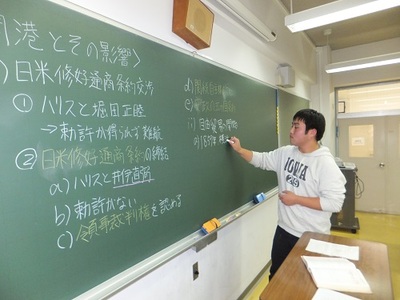 港とその影響〉
日米修好通商条約交渉
① ハリスと堀田正睦
→勅許が得られず難航
② 日米修好通商条約の締結
a) ハリスと井伊直弼
b) 勅許がない
c) 領事裁判権を認める
d)
e)
i) 自由貿易
ii) 1859年 横
IOWA